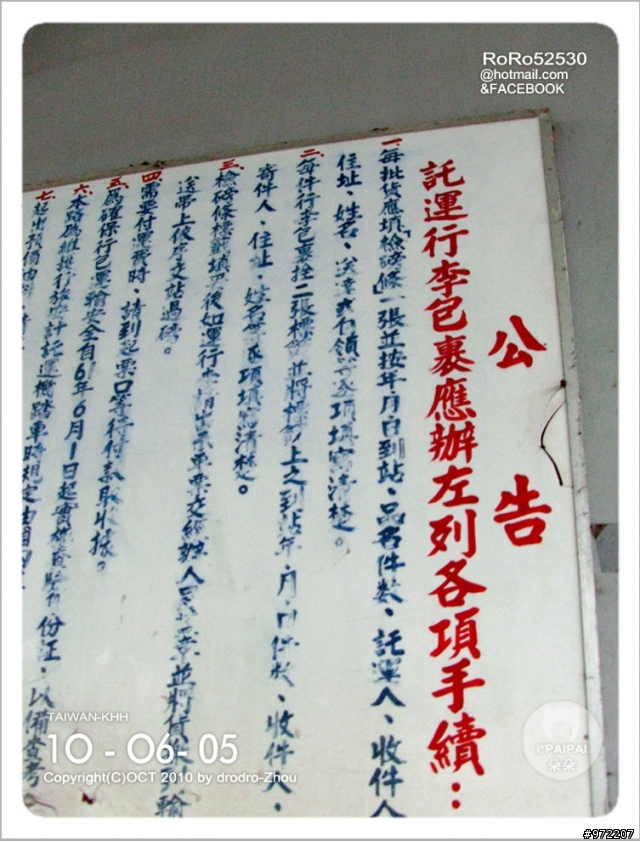 RoRo52530
@hotmail.com
&FACEBOOK
公告
託運行李包裹應辦左列各項手續：
一、每批貨應填「檢磅條」一張並按年月日到站、品名件數、託運人、收件人
住址、姓名、送達或自領等各項填寫清楚。
二、每件行李包裹拴二張標籤並將標籤上之到站年、月、日件數、收件人、
寄件人、住址、姓名等各項填寫清楚。
三、檢磅條標籤填妥後如運行李請出示車票交經辦人員並將貨
送帶上
四、需要付運費時、請到起票口等待付款取收據。
五、為確保行包運輸安全自61年6月1日起實
身份証、以備查考。
六、本路為維護行旅
託運機踏車時規定由
七、
TAIWAN-KHH
10 - 06- 05
Copyright(C)OCT 2010 by drodro-Zhou
i'PAIPAI
朵朵
#972207